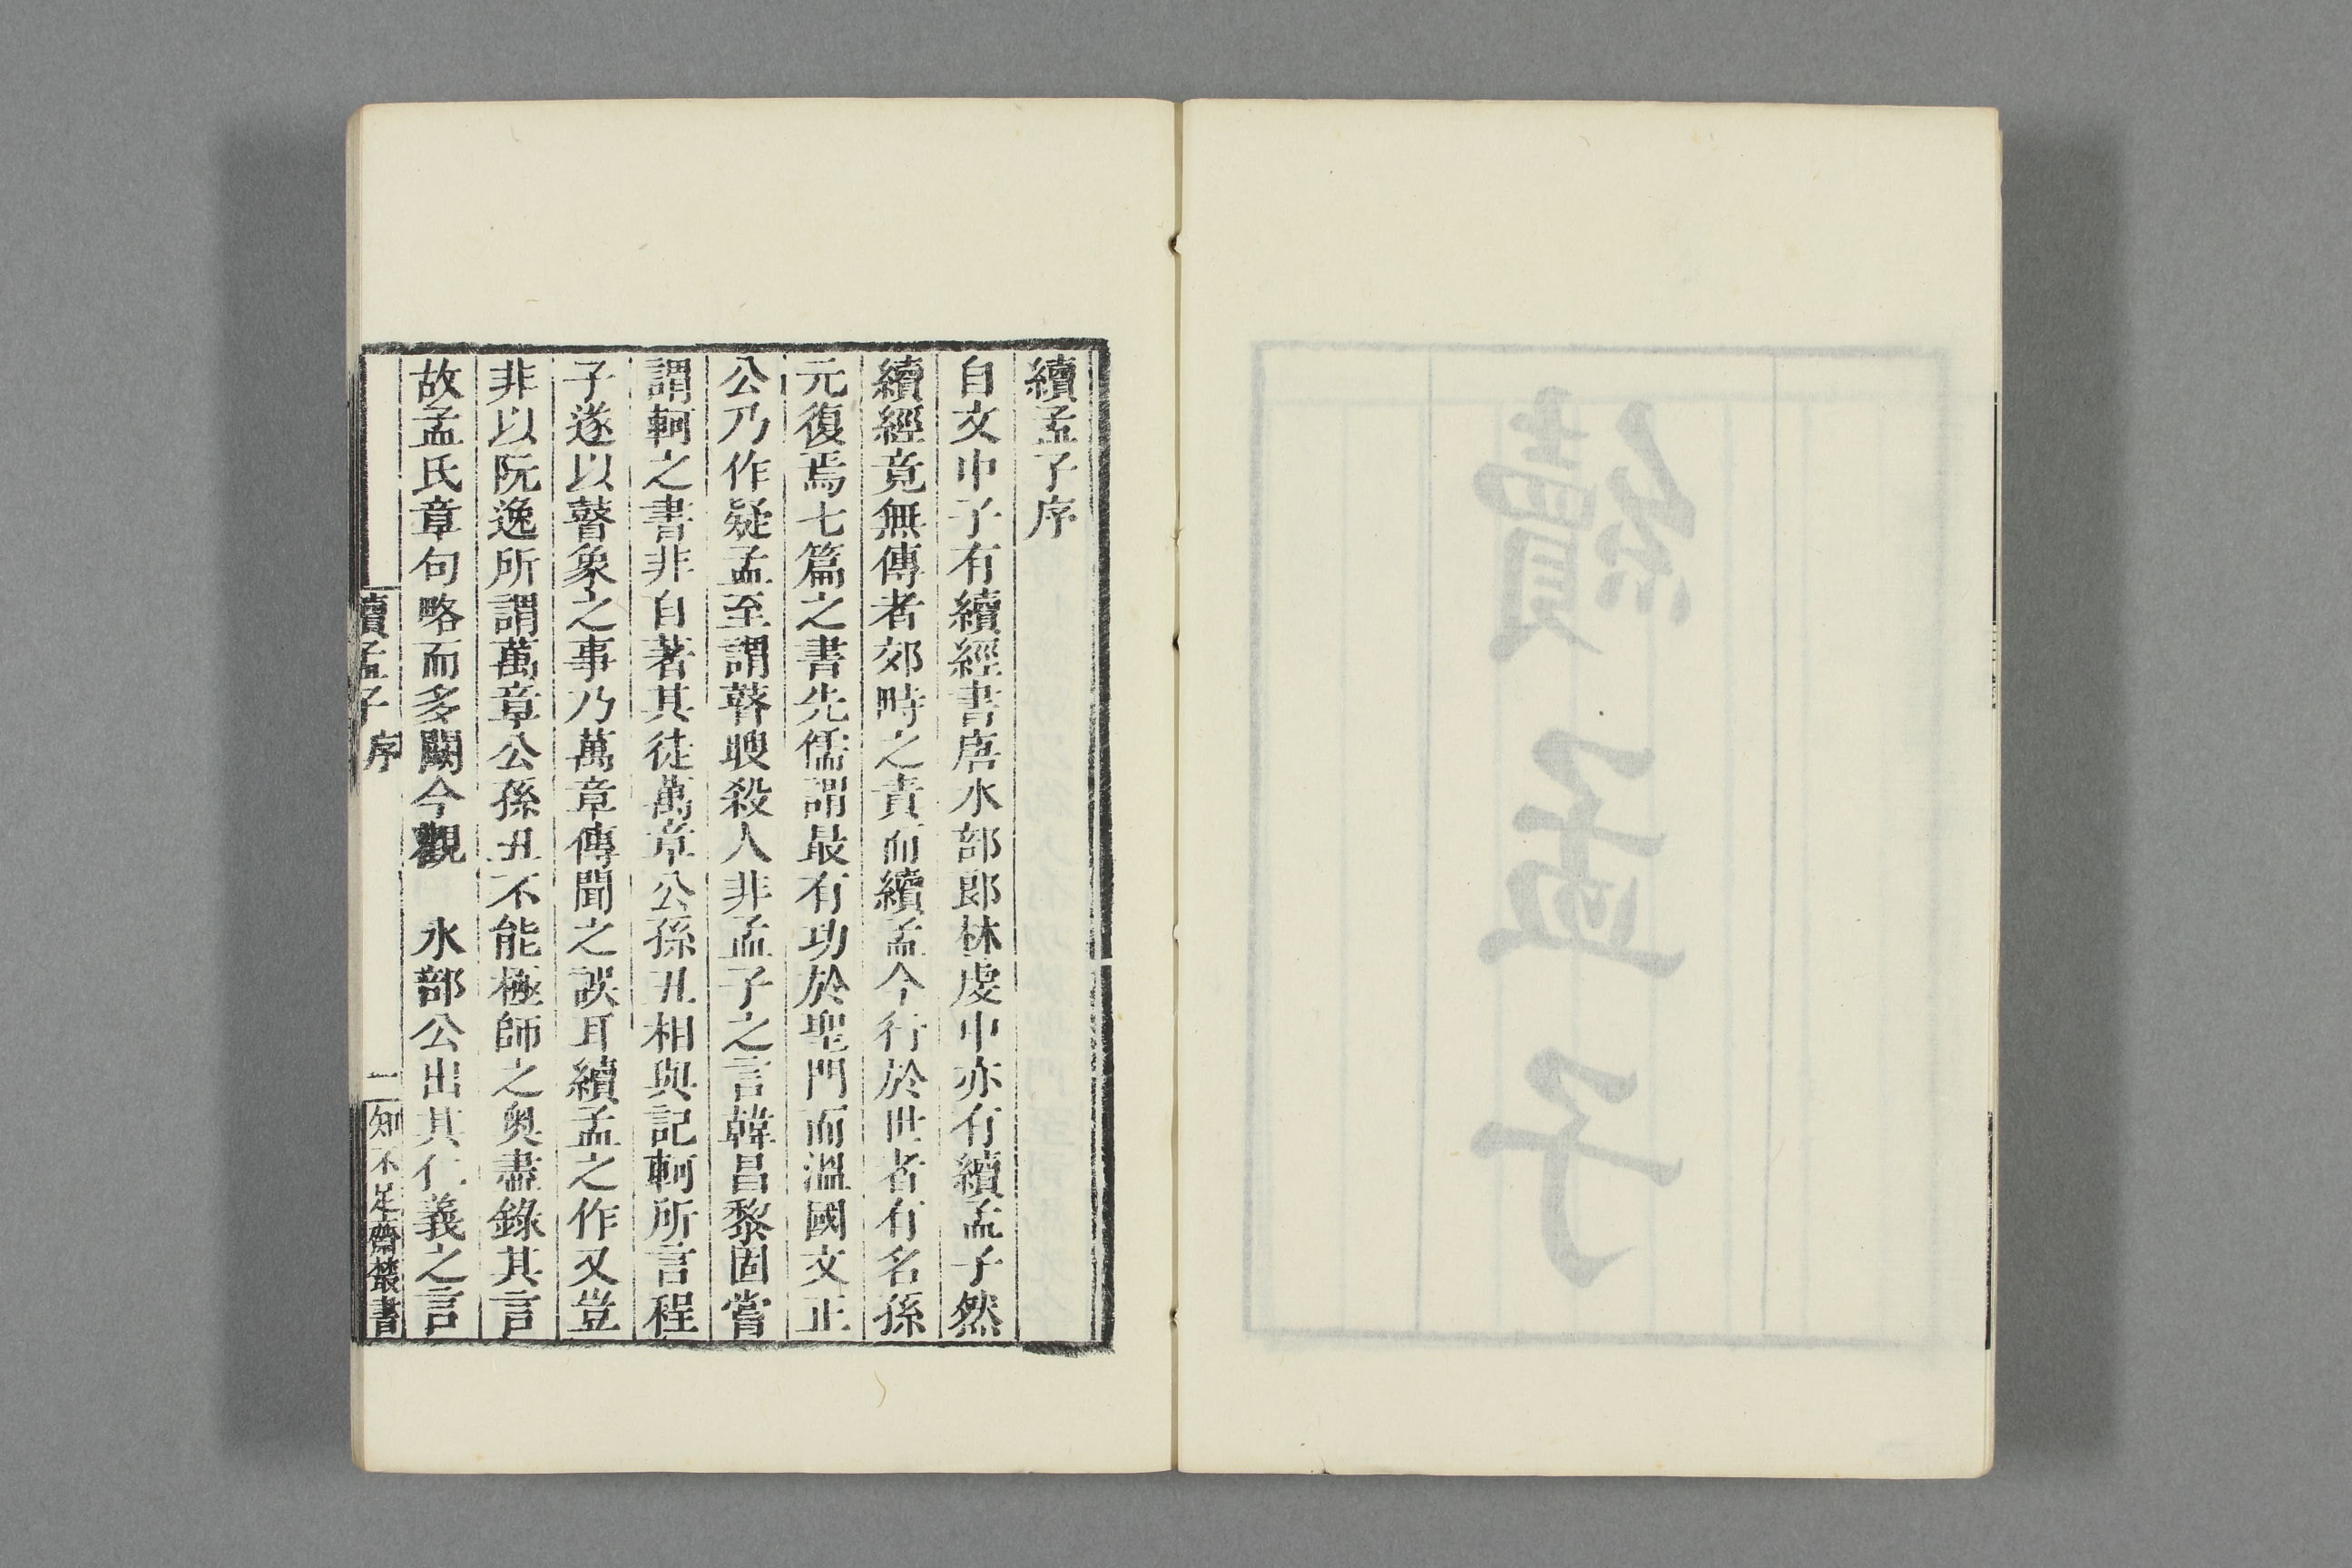 續孟子
續孟子序
自文中子有續經書唐水部郎林虔中亦有續孟子然
續經竟無傳者郊時之責而續孟今行於世者有名孫
元復焉七篇之書先儒謂最有功於聖門而溫國文正
公乃作疑孟至謂瞽瞍殺人非孟子之言韓昌黎固嘗
謂軻之書非自著其徒萬章公孫丑相與記軻所言程
子遂以瞽象之事乃萬章傳聞之誤耳續孟之作又豈
非以阮逸所謂萬章公孫丑不能極師之奧盡錄其言
故孟氏章句略而多闕今觀　水部公出其仁義之言
續孟子序　一　知不足齋叢書